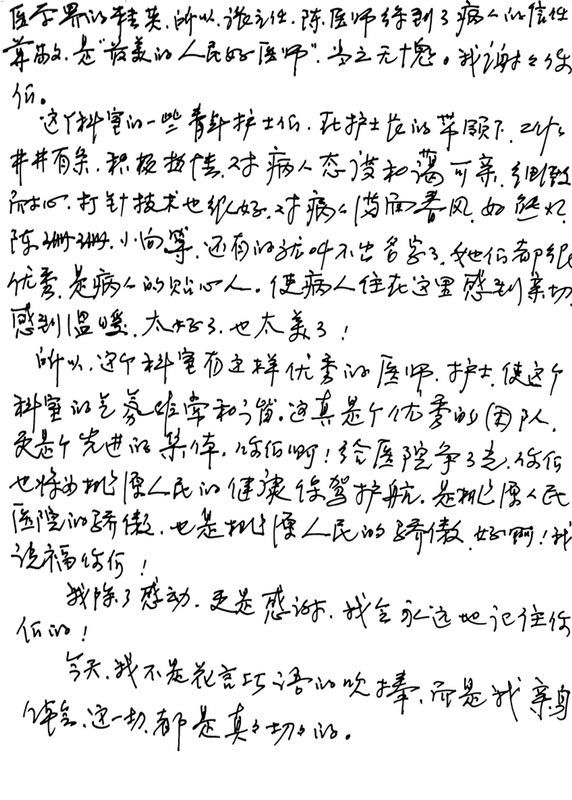 医学界的精英，所以，张主任，陈医师得到了病人的信任
尊敬，是"最美的人民好医师"，当之无愧。我谢谢你
们。
这个科室的一些青年护士们，在护士长的带领下，工作
井井有条，积极热情，对病人态度和蔼可亲，细致
而耐心，打针技术也很好，对病人满面春风，如熊欢，
陈珊珊，小向等，还有的我叫不出名字了，她们都很
优秀，是病人的贴心人。使病人住在这里感到亲切，
感到温暖，太好了，也太美了！
所以，这个科室有这样优秀的医师，护士，使这个
科室的气氛非常和谐。这真是个优秀的团队，
更是个先进的集体，你们啊！给医院争了光，你们
也将为桃源人民的健康保驾护航，是桃源人民
医院的骄傲，也是桃源人民的骄傲，好啊！我
祝福你们！
我除了感动，更是感谢，我会永远地记住你
们的！
今天，我不是花言巧语的吹捧，而是我亲身
体会，这一切，都是真真切切的。